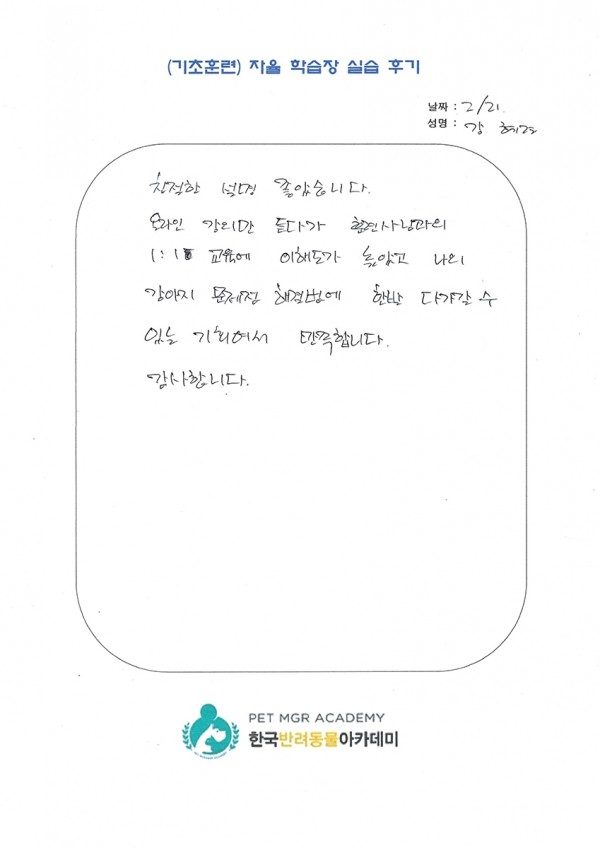 (기초훈련) 자율 학습장 실습 후기
날짜 : 2/21.
성명 : 강
친절한 설명 좋았습니다.
온라인 강의만 듣다가 훈련사님과의
1:1 교육에 이해도가 높았고 나의
강아지 문제점 해결법에 한발 다가갈 수
있는 기회여서 만족합니다.
감사합니다.
PET MGR ACADEMY
한국반려동물아카데미